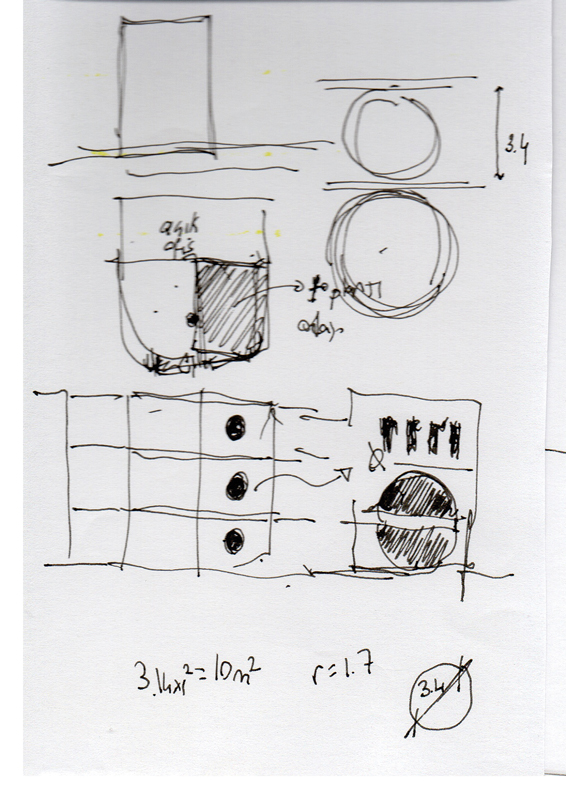 3.4
açık
ofis
toplantı
odası
3.14xr²=10m² r=1.7
3.4